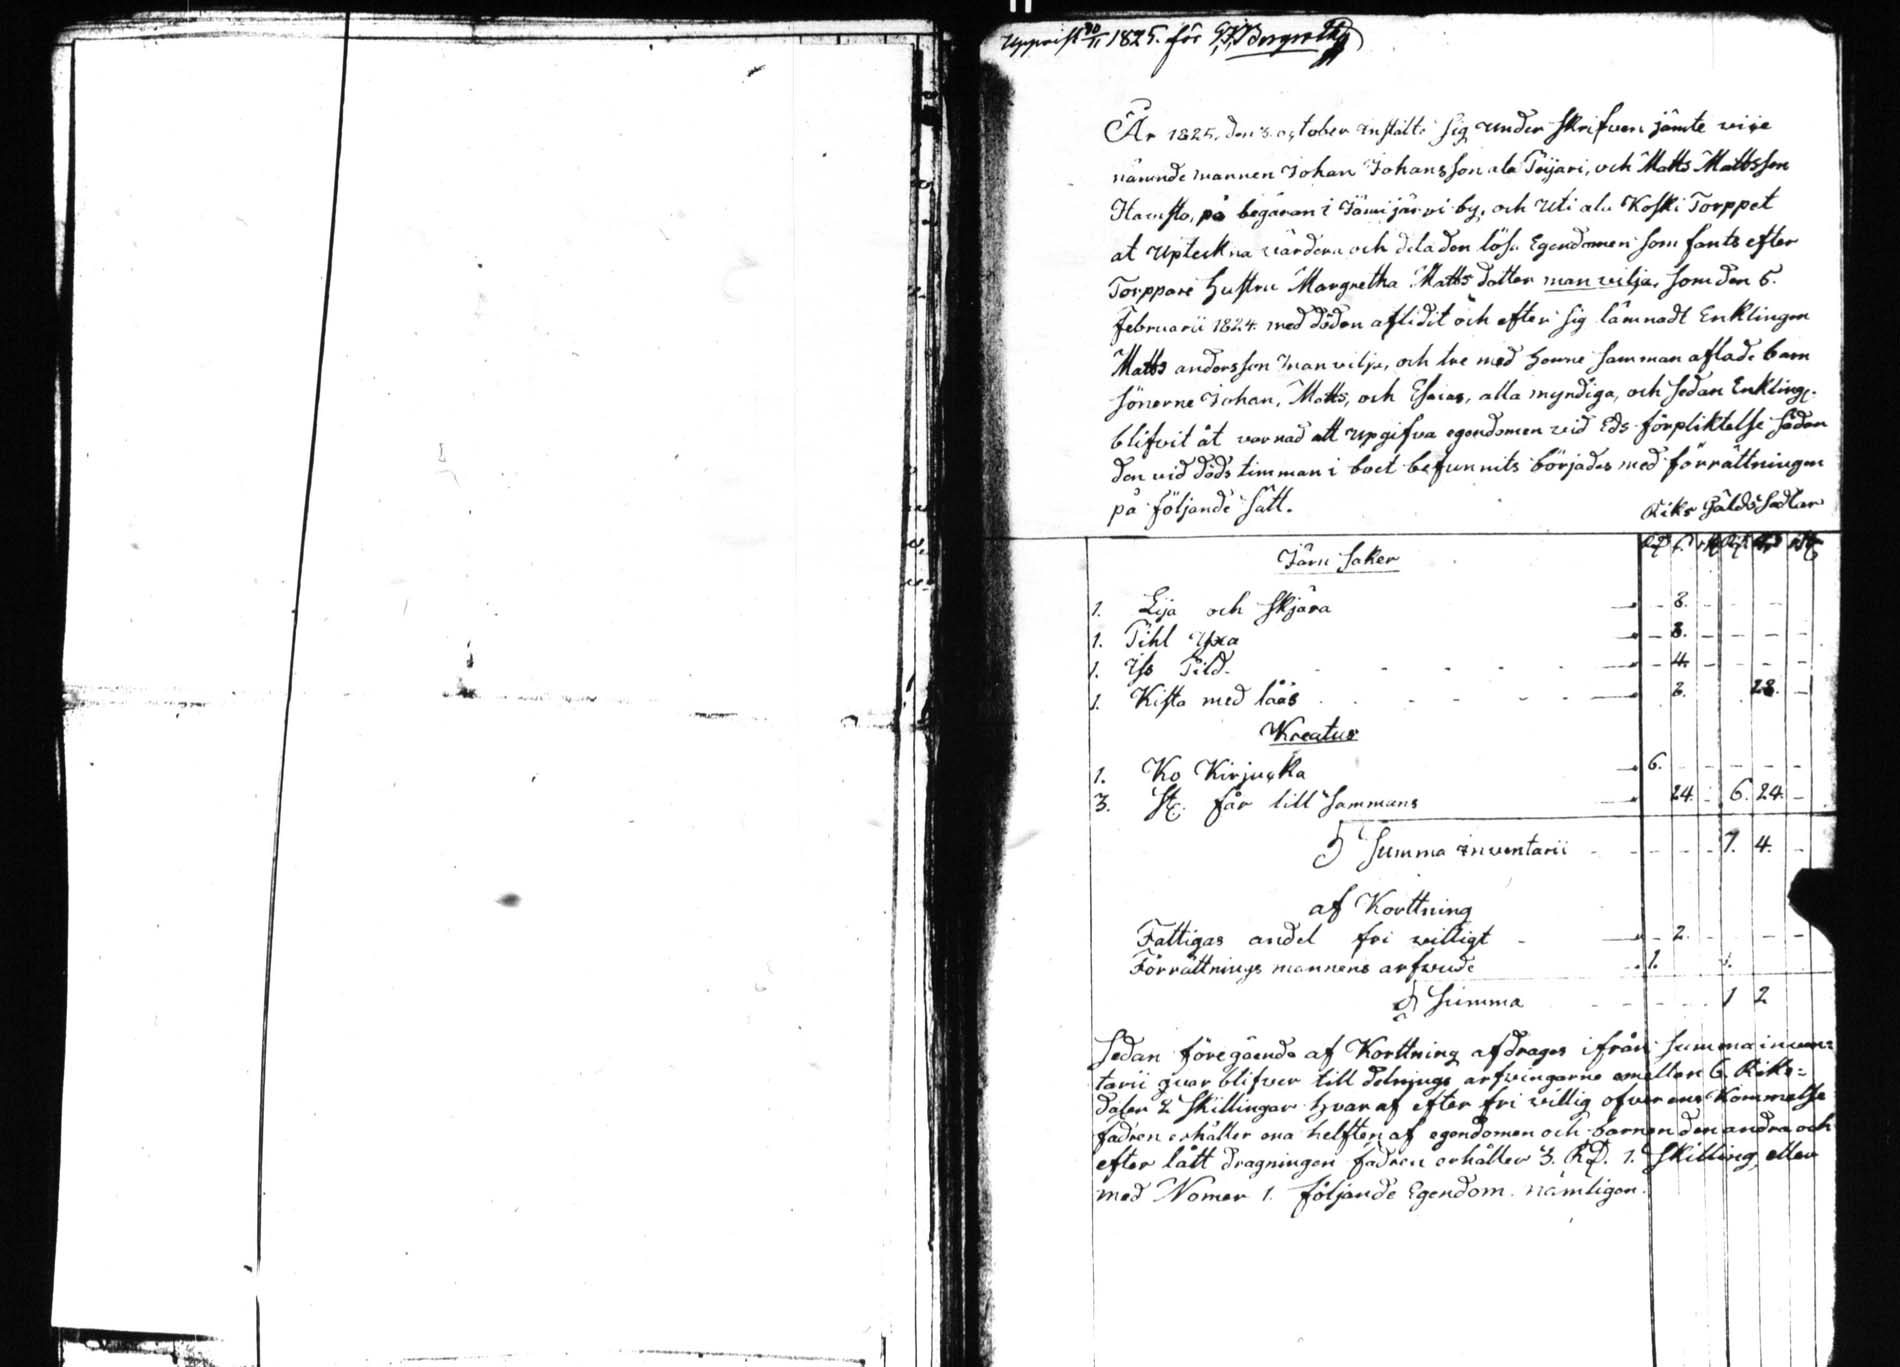 Uppvist 30/11 1825. för
År 1825. den 8. october instälte sig under skrifven jämte
nämnde mannen Johan Johansson ala Töijari, och Matts Mattsson
Havisto, på begäran i Jämijärvi by, och uti ala Koski Torppet
at upteckna värdera och dela den lösa Egendomen som fants efter
Torppare hustru Margretha Matts dotter manvilja, som den 5.
februarii 1824. med döden aflidit och efter sig lämnadt Enklingen
Matts andersson manvilja, och tre med honne samman aflade barn
sönerne Johan, Matts, och Esaias, alla myndiga, och sedan Enkling.
blifvit åt varnad att upgifva egendomen vid Eds förpliktelse sådan
den vid döds timman i boet befunnits börjades med förrättningen
på följande sätt.
Riks Gälds Sedlar
Järn saker
1. Lija och skjära — 8. — — —
1. Tihl yxa — 8. — — —
1. Iss Tild. — 4. — — —
1. Kista med låås — 8. 28. —
Kreatur
1. Ko Kirjucka 6. — — — —
3. St. får till sammans 24. — 6. 24. —
Summa inventarii — — — 7. 4. —
af Korttning
Fattigas andel fri villigt — 2. — — —
Förrättnings mannens arfvude 1. 1.
Summa — — — 1 2
Sedan föregående af Korttning afdrages ifrån summa inven=
tarii qvar blifver till delnings arfvingarne emellan 6. Riks=
daler 2 skillingar hvar af efter fri villig öfverens Kommelse
fadren erhåller ena helften af egendomen och barnen den andra och
efter lått dragningen fadren erhåller 3. RD. 1. skilling, eller
med Nomer 1. följande Egendom. nämligen.